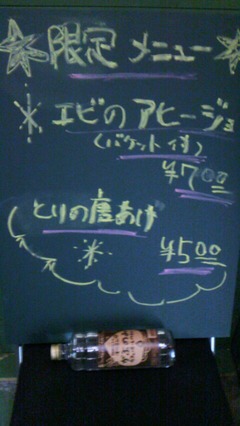 限定 メニュー
エビの アヒージョ
(バケット 付)
¥700
とりの唐あげ
¥500